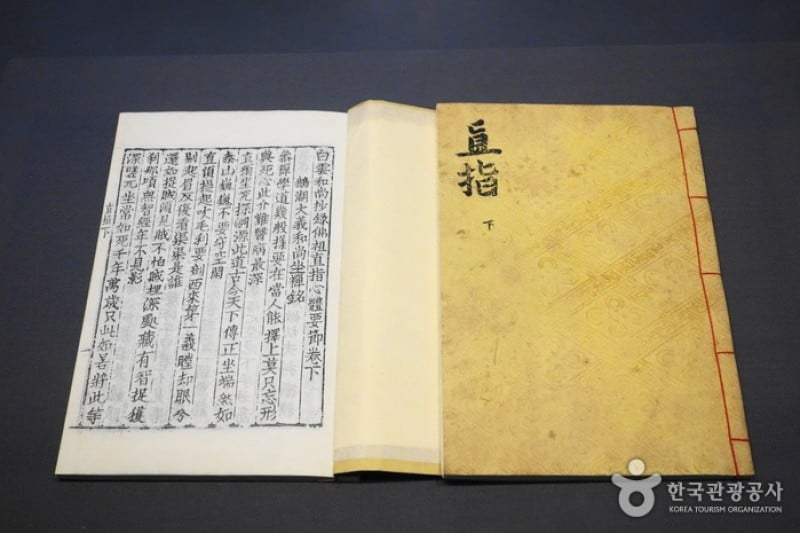 白雲和尚抄錄佛祖直指心體要節卷下
鵝湖大義和尚坐禪銘
叅禪學道幾般樣要在當人能擇上莫只忘形
與死心此个難醫病最深
直須坐究探淵源此道古今天下傳正坐端然如
泰山巍巍不要守空閑
直須提起吹毛利要剖西來第一義瞠却眼兮
剔起眉反復看渠渠是誰
還如捉賊須見賊不怕賊埋深處藏有智捉獲
刹那頃無智經年不見影
深嗟兀坐常如死千年萬歲只此如若將此等
直指下
直指
下
한국관광공사
KOREA TOURISM ORGANIZATION